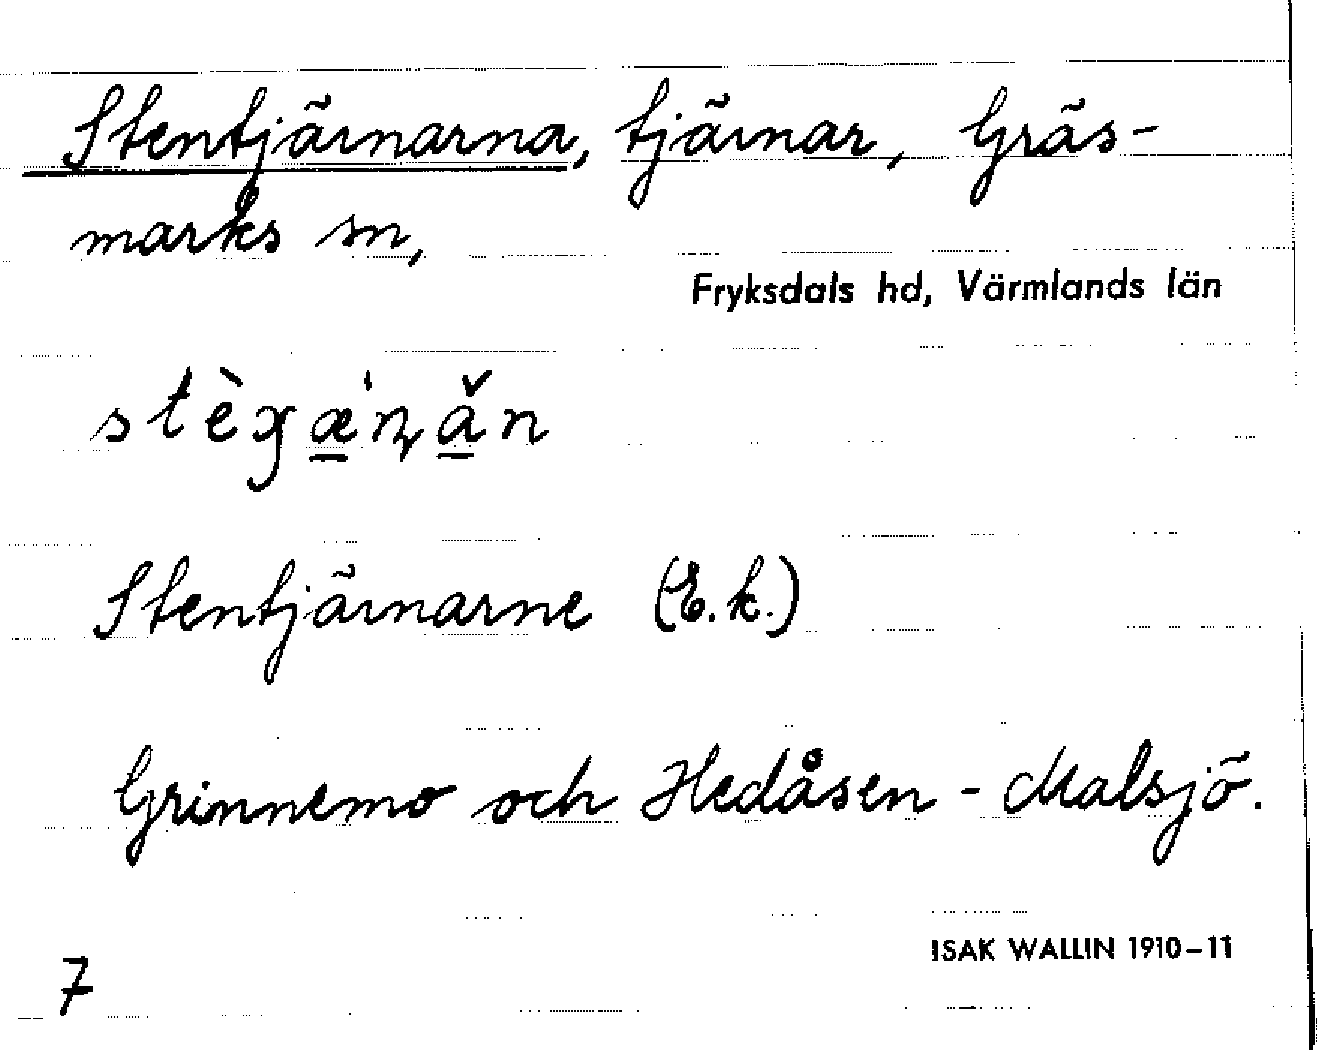 Stentjärnarna, tjärnar, Gräs-
marks sn,
Fryksdals hd, Värmlands län
Stentjärnarne (E.k.)
Grinnemo och Hedåsen - Malsjö.
ISAK WALLIN 1910-11
7